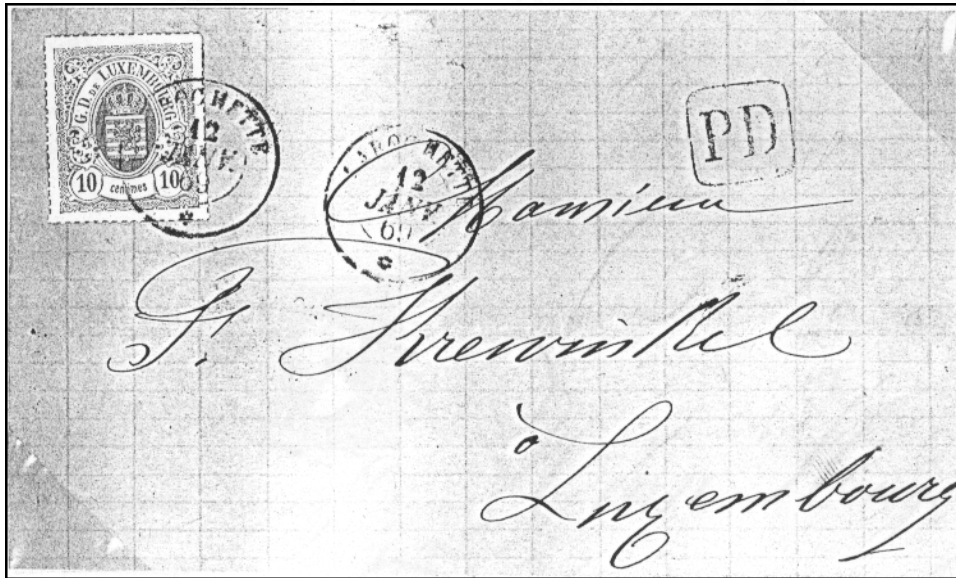 G. D. DE LUXEMBOURG
10 centimes 10
LAROCHETTE
12
JANV
69
LAROCHETTE
12
JANV
69
PD
Monsieur
Krewinkel
à Luxembourg